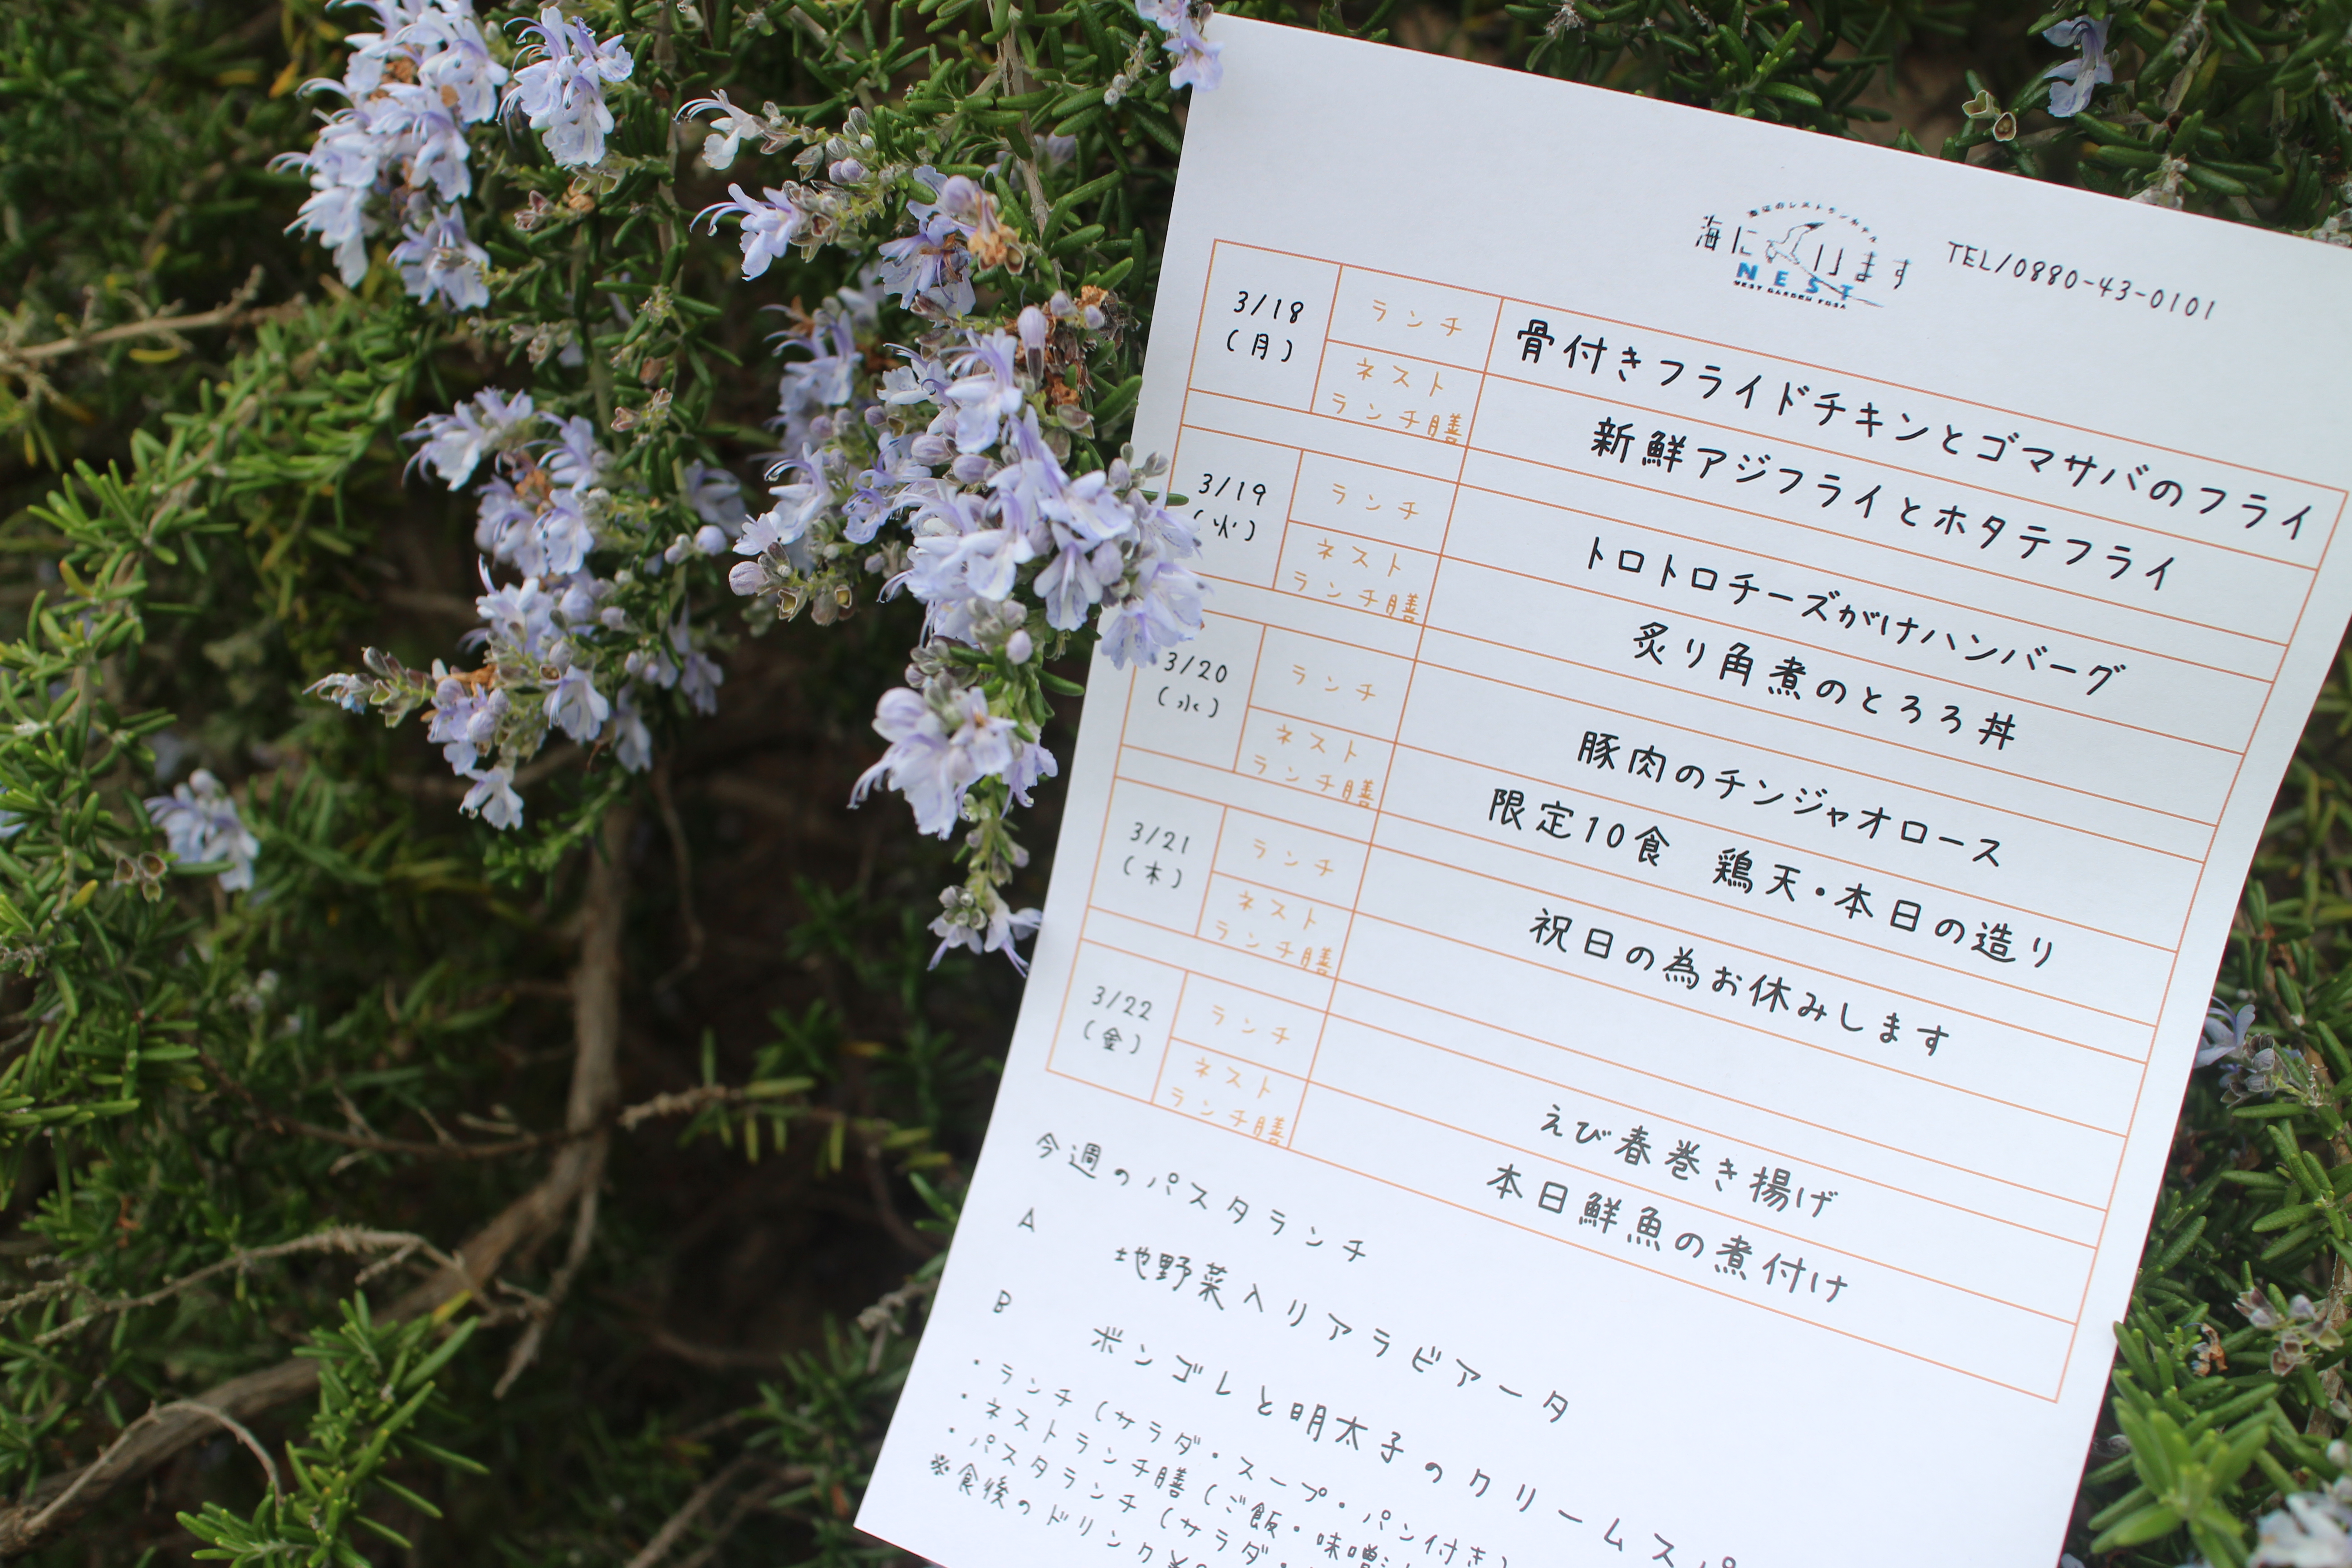 海辺のレストランホテル
海に います
NEST
NEST GARDEN TOSA
TEL/0880-43-0101
3/18
(月)
ランチ
骨付きフライドチキンとゴマサバのフライ
ネスト
ランチ膳
新鮮アジフライとホタテフライ
3/19
(火)
ランチ
トロトロチーズがけハンバーグ
ネスト
ランチ膳
炙り角煮のとろろ丼
3/20
(水)
ランチ
豚肉のチンジャオロース
ネスト
ランチ膳
限定10食 鶏天・本日の造り
3/21
(木)
ランチ
祝日の為お休みします
ネスト
ランチ膳
3/22
(金)
ランチ
えび春巻き揚げ
ネスト
ランチ膳
本日鮮魚の煮付け
今週のパスタランチ
A 地野菜入りアラビアータ
B ボンゴレと明太子のクリームスパ
・ランチ(サラダ・スープ・パン付き)
・ネストランチ膳(ご飯・味噌
・パスタランチ(サラダ・
※食後のドリンク